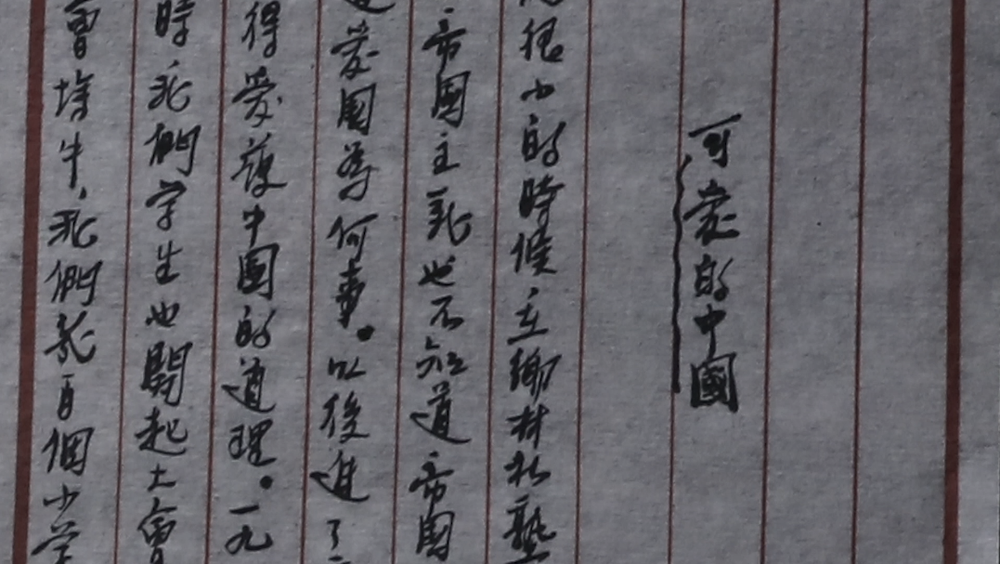 可愛的中國
很小的時候在鄉村私塾
帝國主義也不知道帝國
愛國為何事。以後進了
得愛護中國的道理。一九
時我們学生也開起大會
會場中，我們幾百個小学